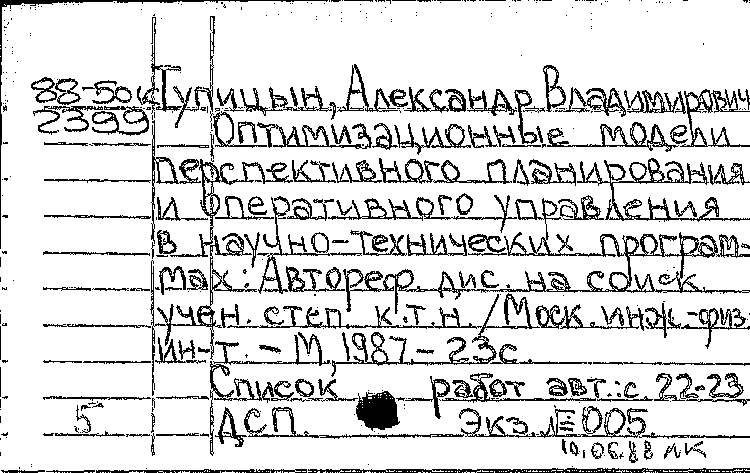 88-50к Тупицын, Александр Владимирович
2399 Оптимизационные модели
перспективного планирования
и оперативного управления
в научно-технических програм-
мах: Автореф. дис. на соиск.
учен. степ. к.т.н. / Моск. инж.-физ.
ин-т. - М., 1987. - 23с.
Список работ авт.: с. 22-23
5 ДСП. Экз. № 005.
10.06.88 лк